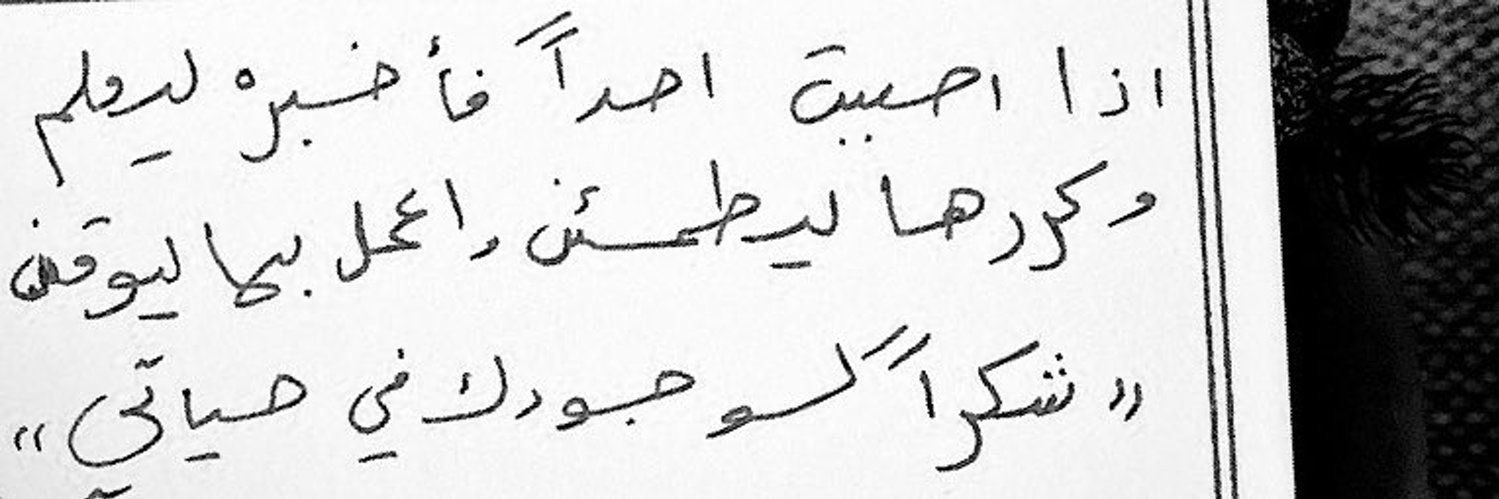 اذا احببت احداً فأخبره ليعلم
وكررها ليطمئن واعمل بها ليوقن
"شكراً لوجودك في حياتي"